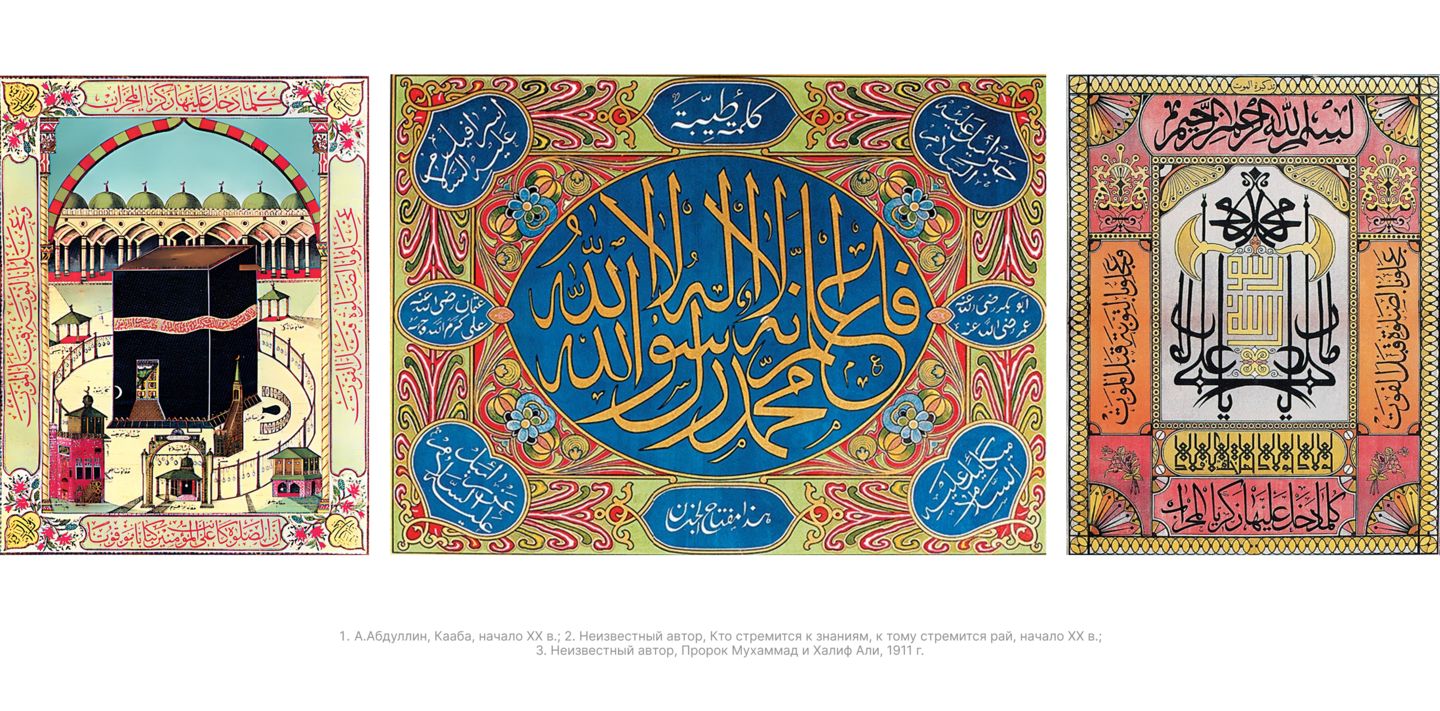 كلما دخل عليها زكريا المحراب
عجلوا بالصلوة قبل الفوت
وعجلوا بالتوبة قبل الموت
ان الصلوة كانت على المؤمنين كتابا موقوتا
كلمة طيبة
اسرافيل عليه السلام
جبرائيل عليه السلام
فاعلم انه لا اله الا الله
محمد رسول الله
عثمان رضي الله عنه
علي كرم الله
ابو بكر رضى الله عنه
عمر رضى الله عنه
عزرائيل عليه السلام
ميكائيل عليه السلام
هذا مفتاح الجنان
تذكرة الموت
بسم الله الرحمن الرحيم
محمد
رسول الله
عجلوا بالصلوة قبل الفوت
وعجلوا بالتوبة قبل الموت
كلما دخل عليها زكريا المحراب
1. А.Абдуллин, Кааба, начало XX в.; 2. Неизвестный автор, Кто стремится к знаниям, к тому стремится рай, начало XX в.;
3. Неизвестный автор, Пророк Мухаммад и Халиф Али, 1911 г.